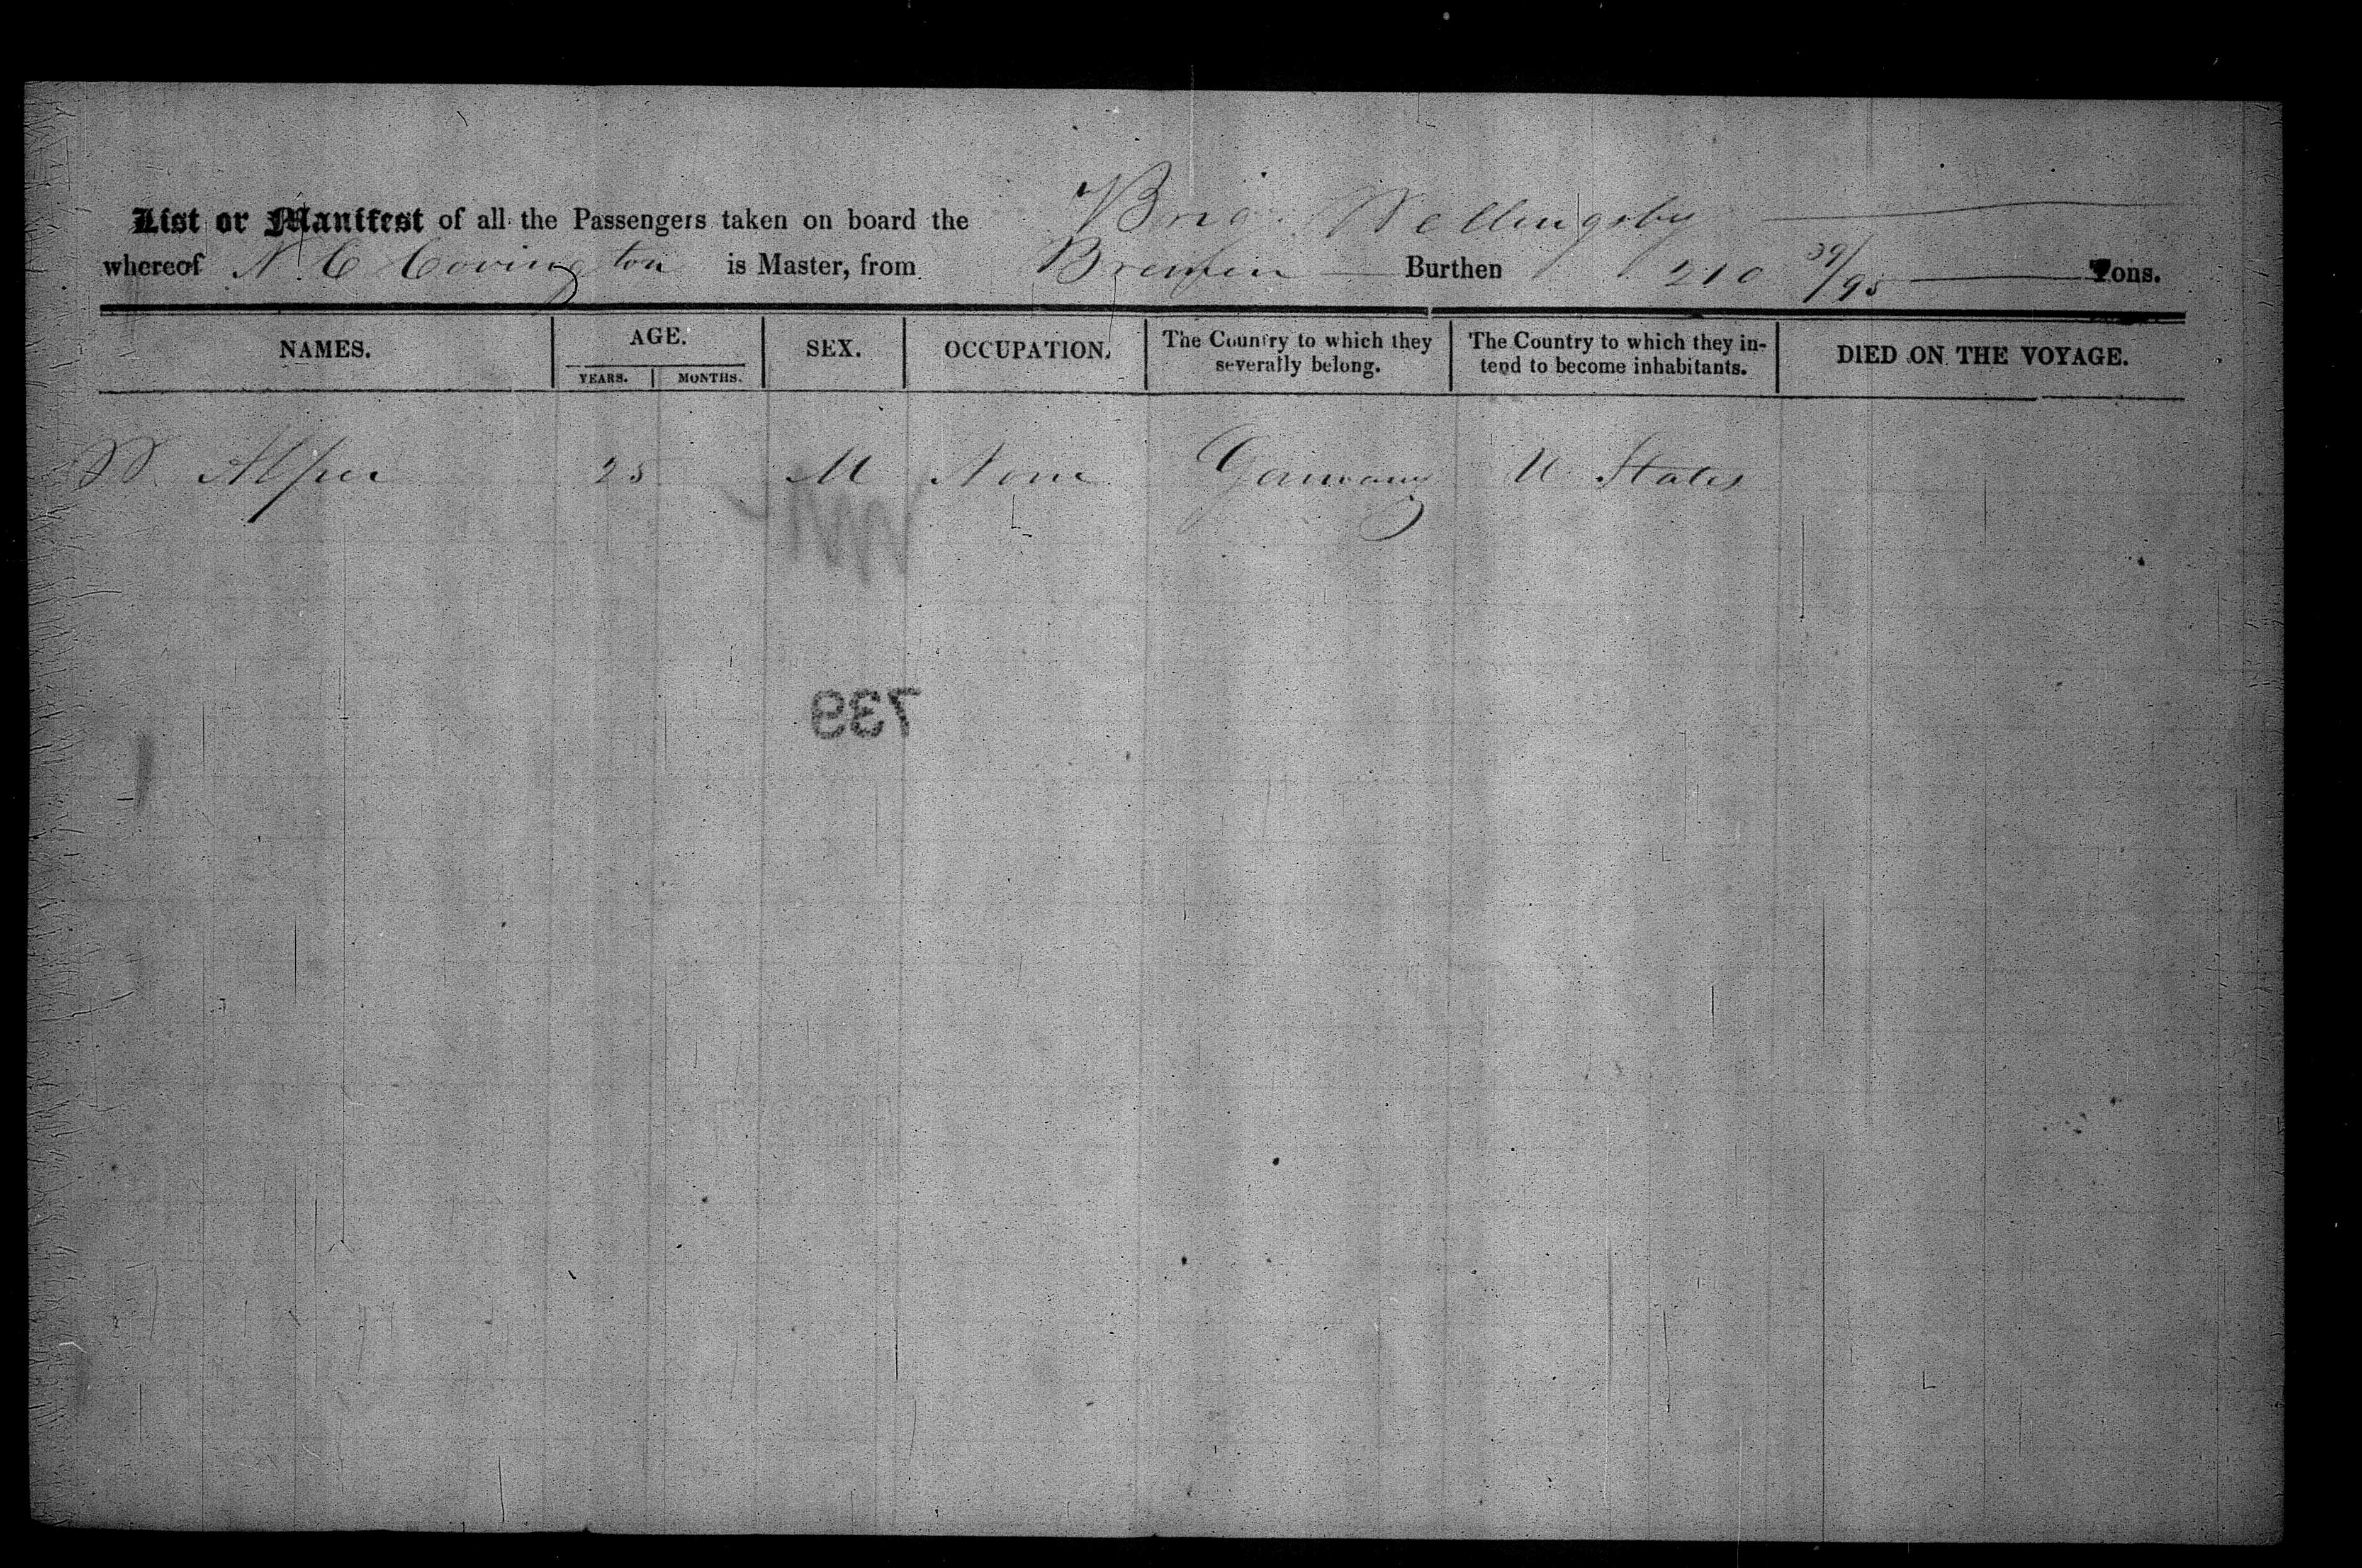 List or Manifest of all the Passengers taken on board the Brig Wellingsby
whereof N C Covington is Master, from Bremen Burthen 210 39/95 Tons.
NAMES. AGE. SEX. OCCUPATION. The Country to which they severally belong. The Country to which they in- tend to become inhabitants. DIED ON THE VOYAGE.
YEARS. MONTHS.
W 25 M None Germany U States
739